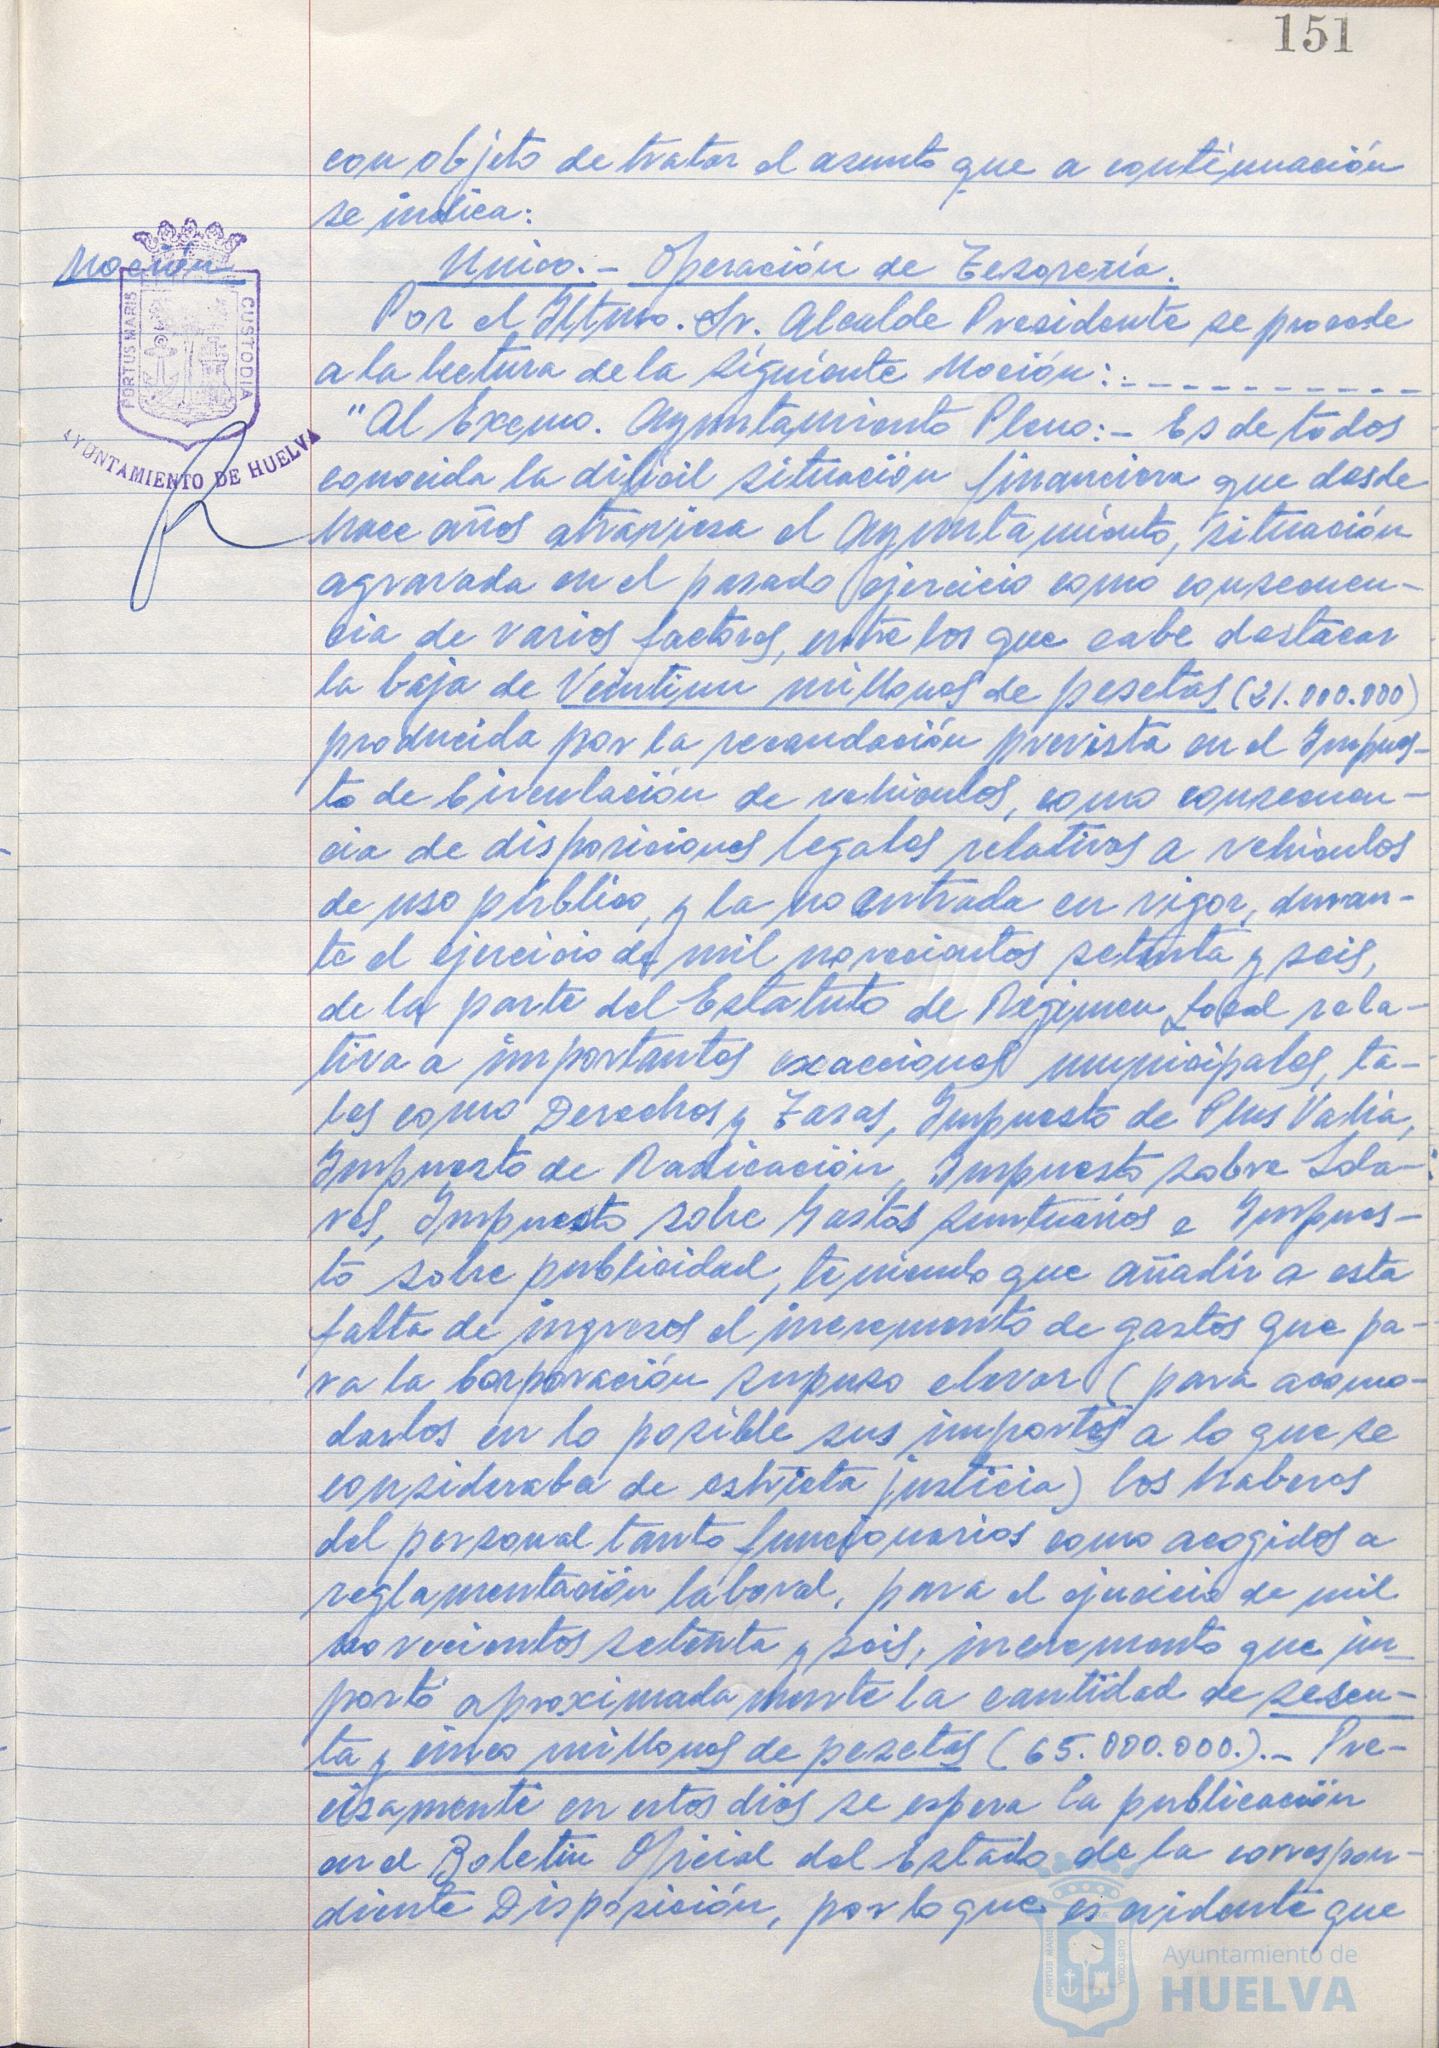 151
con objeto de tratar el asunto que a continuación
se indica:
Moción
Unico.- Operación de Tesorería.
Por el Iltmo. Sr. Alcalde Presidente se procede
a la lectura de la siguiente Moción:
PORTUS MARIS CUSTODIA
AYUNTAMIENTO DE HUELVA
"Al Excmo. Ayuntamiento Pleno:- Es de todos
conocida la dificil situación financiera que desde
hace años atraviesa el Ayuntamiento, situación
agravada en el pasado ejercicio como consecuen-
cia de varios factores, entre los que cabe destacar
la baja de Veintiun millones de pesetas (21.000.000)
producida por la recaudación prevista en el Impues-
to de Circulación de vehiculos, como consecuen-
cia de disposiciones legales relativas a vehiculos
de uso público, y la no entrada en vigor, duran-
te el ejercicio de mil novecientos setenta y seis,
de la parte del Estatuto de Régimen Local rela-
tiva a importantes exacciones municipales, ta-
les como Derechos y Tasas, Impuesto de Plus Valia,
Impuesto de Radicación, Impuesto sobre Sola-
res, Impuesto sobre Gastos suntuarios e Impues-
to sobre publicidad, teniendo que añadir a esta
falta de ingresos el incremento de gastos que pa-
ra la Corporación supuso elevar (para acomo-
darlos en lo posible sus importes a lo que se
consideraba de estricta justicia) los haberes
del personal tanto funcionarios como acogidos a
reglamentación laboral, para el ejercicio de mil
novecientos setenta y seis, incremento que im-
portó aproximadamente la cantidad de sesen-
ta y cinco millones de pesetas (65.000.000.).- Pre-
cisamente en estos dias se espera la publicación
en el Boletin Oficial del Estado de la correspon-
diente Disposición, por lo que es evidente que
PORTUS MARIS CUSTODIA
Ayuntamiento de
HUELVA